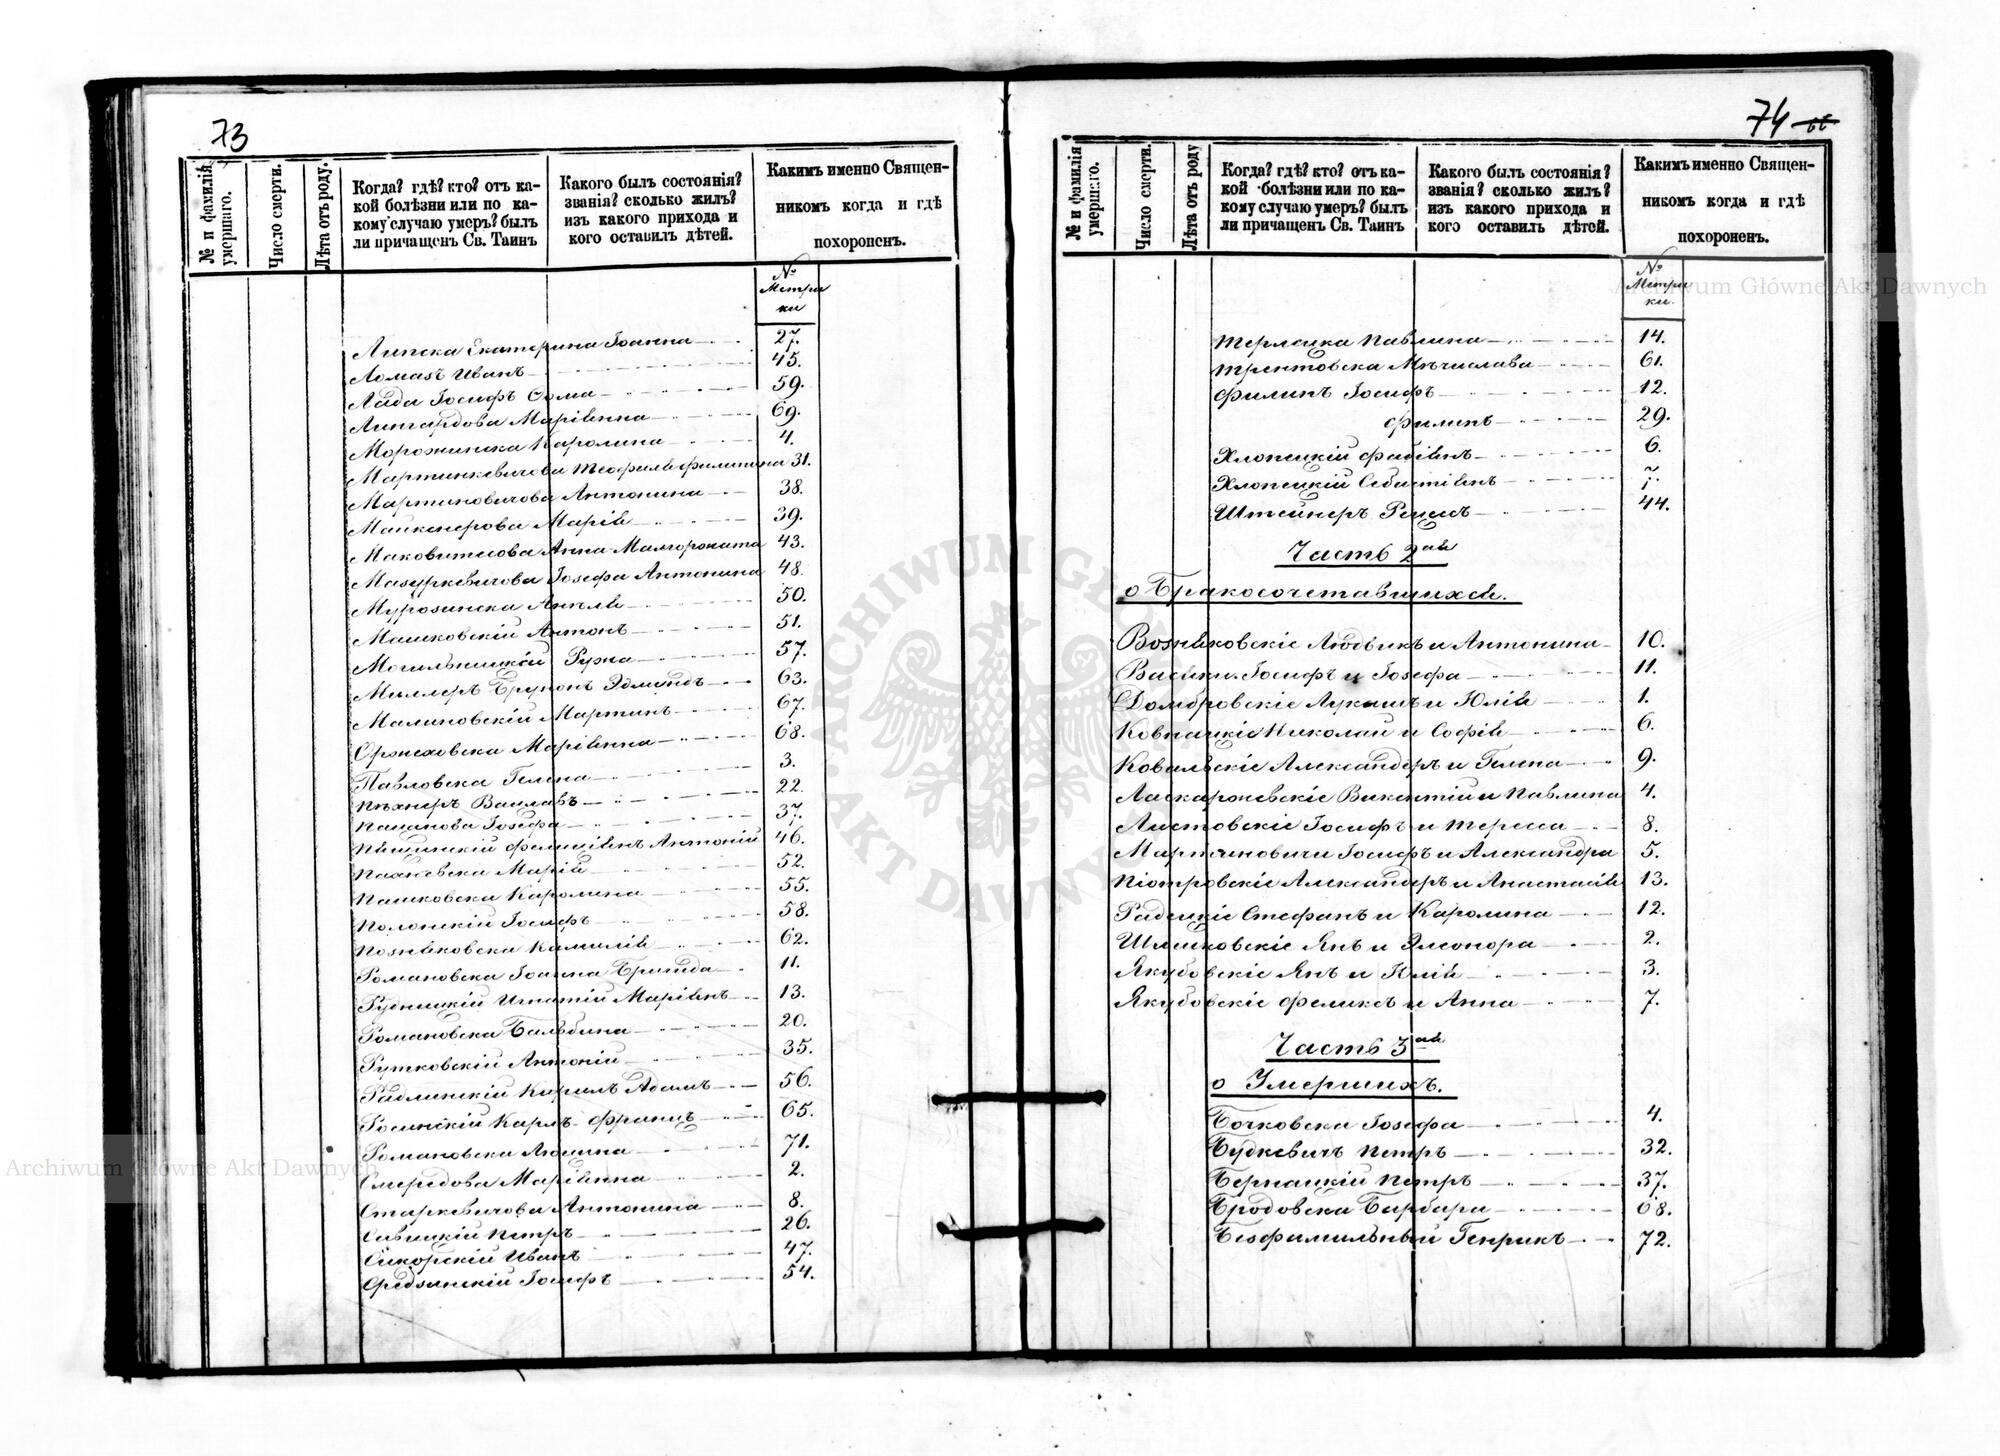 73
№ и фамилія умершаго.
Число смерти.
Лѣта отъ роду.
Когда? гдѣ? кто? отъ какой болѣзни или по какому случаю умеръ? былъ ли причащенъ Св. Таинъ
Какого былъ состоянія? званія? сколько жилъ? изъ какого прихода и кого оставилъ дѣтей.
Какимъ именно Священникомъ когда и гдѣ похороненъ.
№ Метрики
Липска Екатерина Іоанна 27.
Ломазъ Иванъ 45.
Лада Іосифъ Ѳома 59.
Лингардова Маріянна 69.
Морожинска Каролина 4.
Мартинкевичова Теофиля Филипина 31.
Мартиновичова Антонина 38.
Марія 39.
Анна Малгоржата 43.
Мазуркевичова Іозефа Антонина 48.
Мурозинска Анеля 50.
Машковскій Антонъ 51.
57.
Миллеръ Брунонъ Эдмундъ 63.
Малиновскій Мартинъ 67.
Оржеховска Маріянна 68.
Павловска Гелена 3.
Пѣхнеръ Вацлавъ 22.
Іозефа 37.
Фелиціянъ Антоній 46.
Марія 52.
Пашковска Каролина 55.
Полонскій Іосифъ 58.
Позняковска Камилія 62.
Романовска Іоанна Бригида 11.
Рудницкій Игнатій Маріянъ 13.
Романовска Бальбина 20.
Рутковскій Антоній 35.
Радлинскій Кароль Адамъ 56.
Росинскій Карлъ Францъ 65.
Романовска Люцина 71.
Смередова Маріянна 2.
Старкевичова Антонина 8.
Савицкій Петръ 26.
Сикорскій Иванъ 47.
Средзинскій Іосифъ 54.
74 66
№ и фамилія умершаго.
Число смерти.
Лѣта отъ роду
Когда? гдѣ? кто? отъ какой болѣзни или по какому случаю умеръ? былъ ли причащенъ Св. Таинъ
Какого былъ состоянія? званія? сколько жилъ? изъ какого прихода и кого оставилъ дѣтей.
Какимъ именно Священникомъ когда и гдѣ похороненъ.
№ Метрики.
Терлецка Павлина 14.
Трентовска Мѣчислава 61.
Филипъ Іосифъ 12.
Филипъ 29.
Хлопецкій Фабіянъ 6.
Хлопецкій Себастіянъ 7.
Штейнеръ 44.
Часть 2ая
о Бракосочетавшихся.
Возняковскіе Людвикъ и Антонина 10.
Васики Іосифъ и Іозефа 11.
Домбровскіе Лукашъ и Юлія 1.
Ковнацкіе Николай и Софія 6.
Ковальскіе Александеръ и Гелена 9.
Ласкаржевскіе Викентій и Павлина 4.
Листовскіе Іосифъ и Тересса 8.
Мартиновичи Іосифъ и Александра 5.
Піотровскіе Александеръ и Анастасія 13.
Радецкіе Стефанъ и Каролина 12.
Шлешковскіе Янъ и Элеонора 2.
Якубовскіе Янъ и Юлія 3.
Якубовскіе Феликсъ и Анна 7.
Часть 3ая
о Умершихъ.
Бочковска Іозефа 4.
Будкевичъ Петръ 32.
Бернацкій Петръ 37.
Бродовска Барбара 68.
Безфамильный Генрикъ 72.
ARCHIWUM GŁÓWNE AKT DAWNYCH
Archiwum Główne Akt Dawnych
Archiwum Główne Akt Dawnych